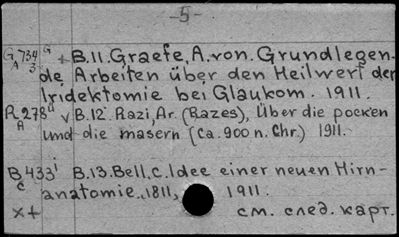 -5-
G 734 G + B.11. Graefe, A. von. Grundlegen-
A 3 de Arbeiten über den Heilwert der
Iridektomie bei Glaukom. 1911.
R 278 u v B.12. Razi, Ar. (Razes), Über die pocken
A und die masern (Ca. 900 n. Chr.) 1911.
B 433 i B.13. Bell, C. Idee einer neuen Hirn-
C anatomie. 1811, 1911.
x+ см. след. карт.